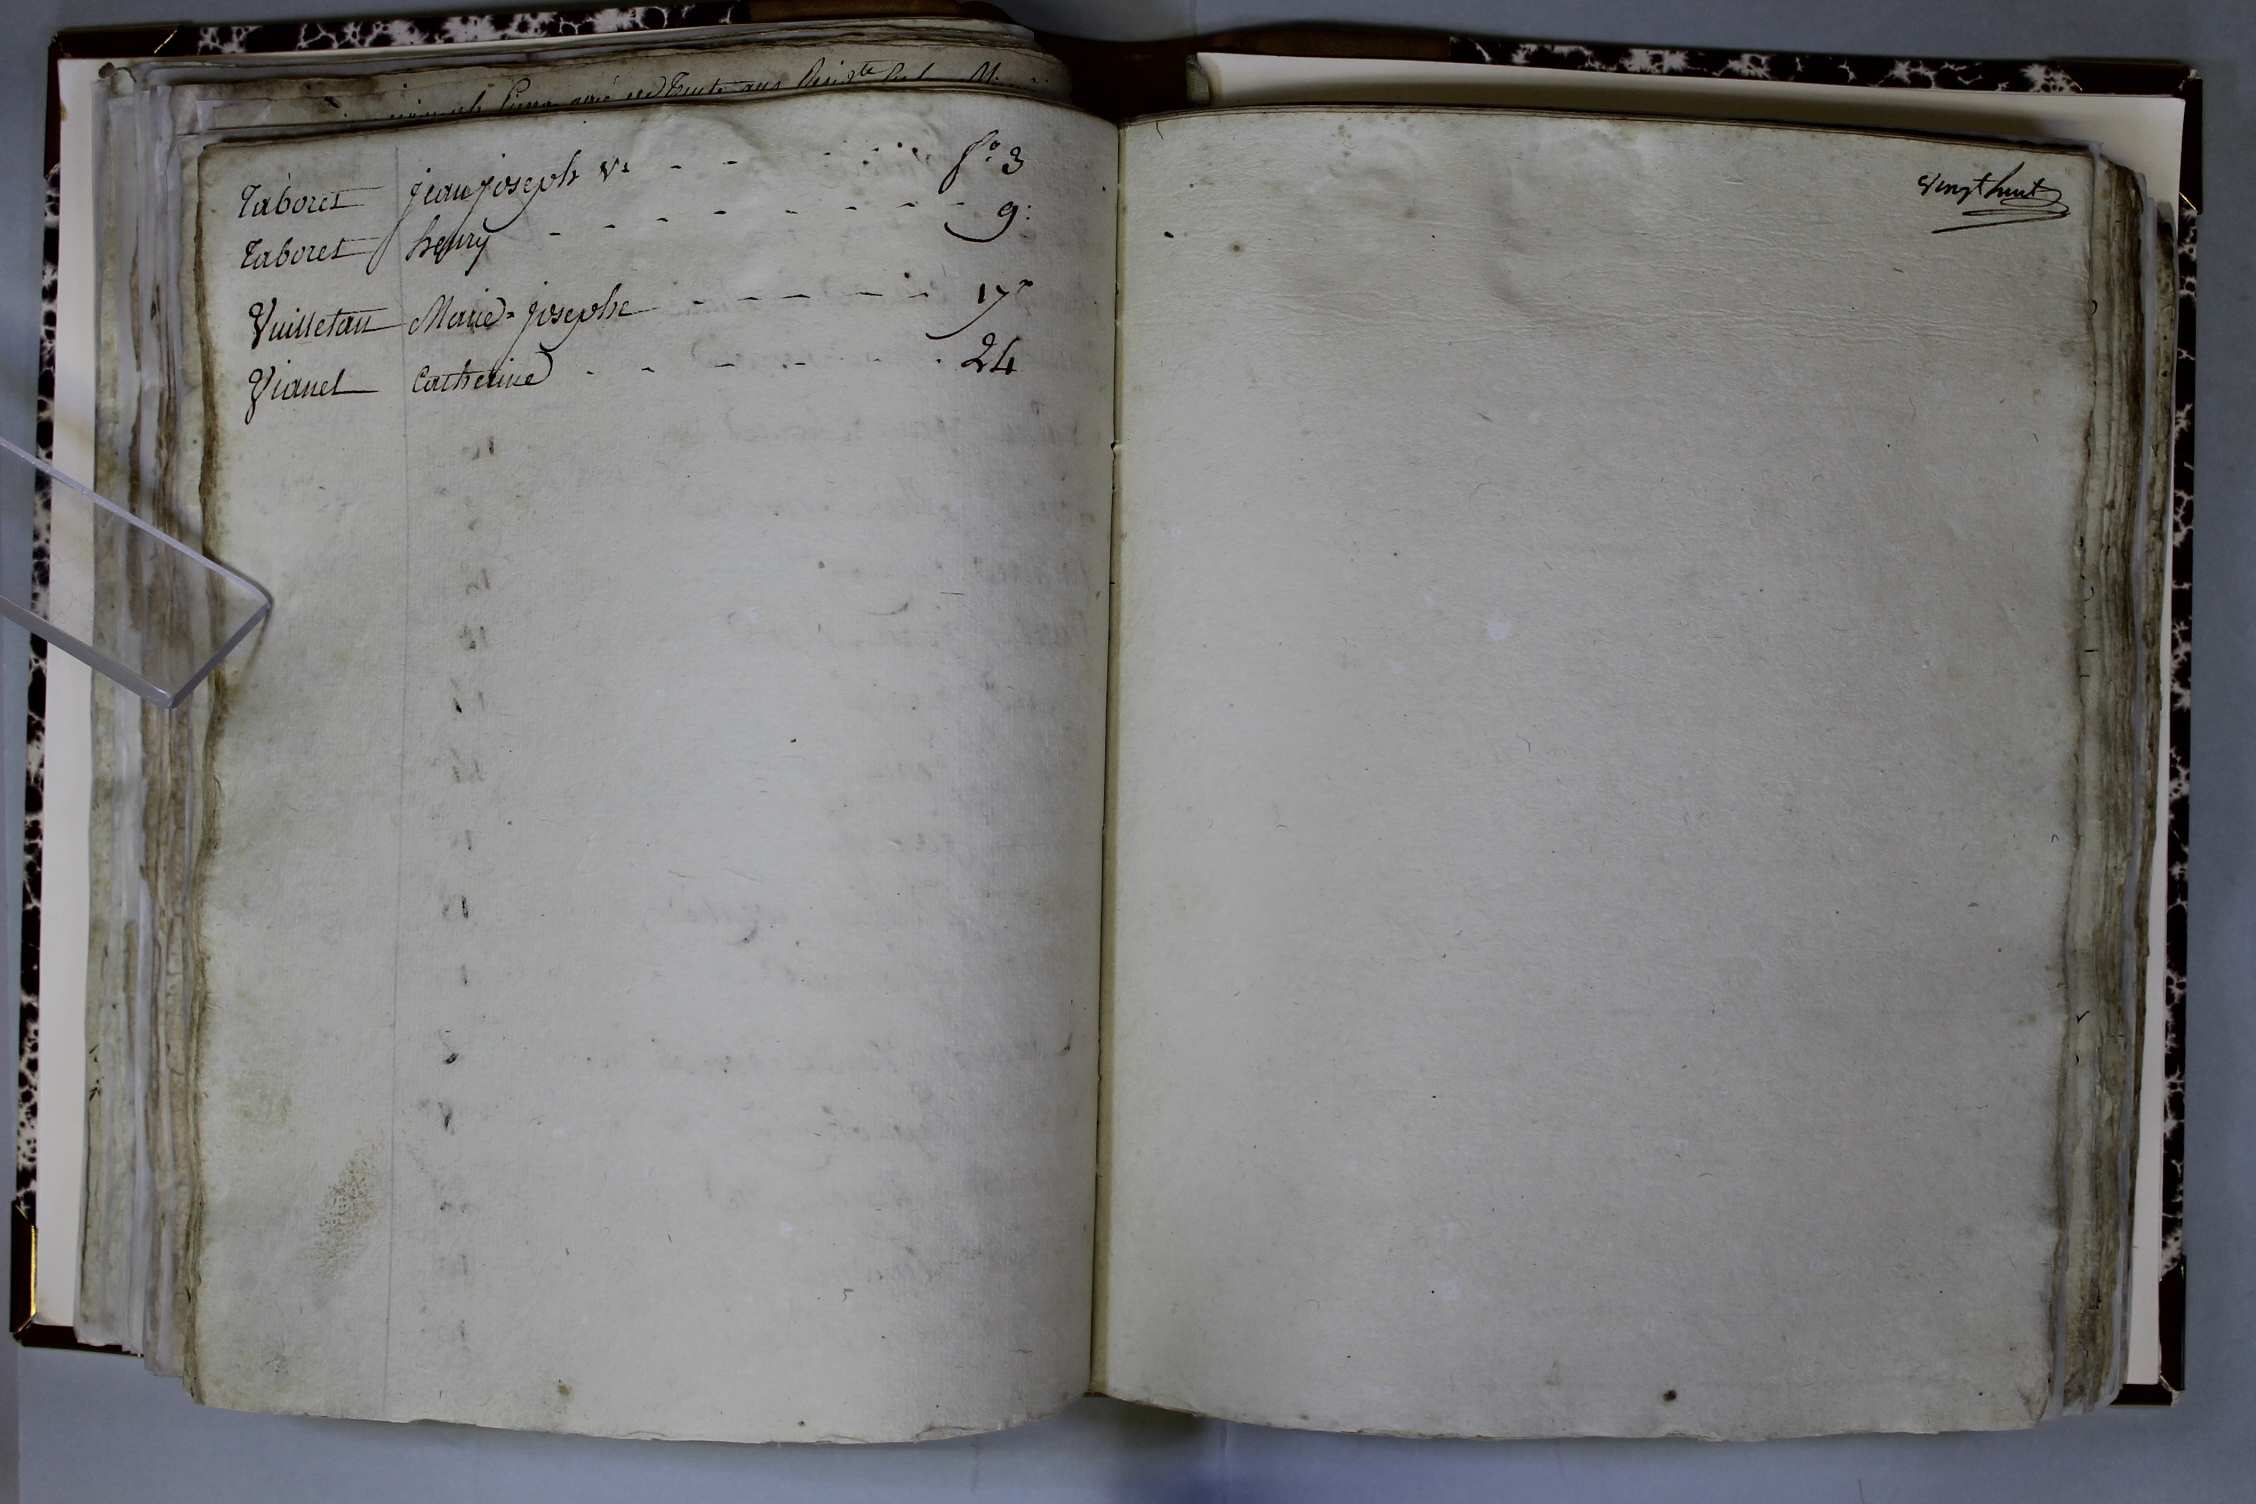 Taboret jean joseph v.e - - - - - - f.o 3
Taboret henry - - - - - - - 9.
Vuilletau Marie-josephe - - - - - 17.
Vianel Catherine - - - - - - 24
vingt huit